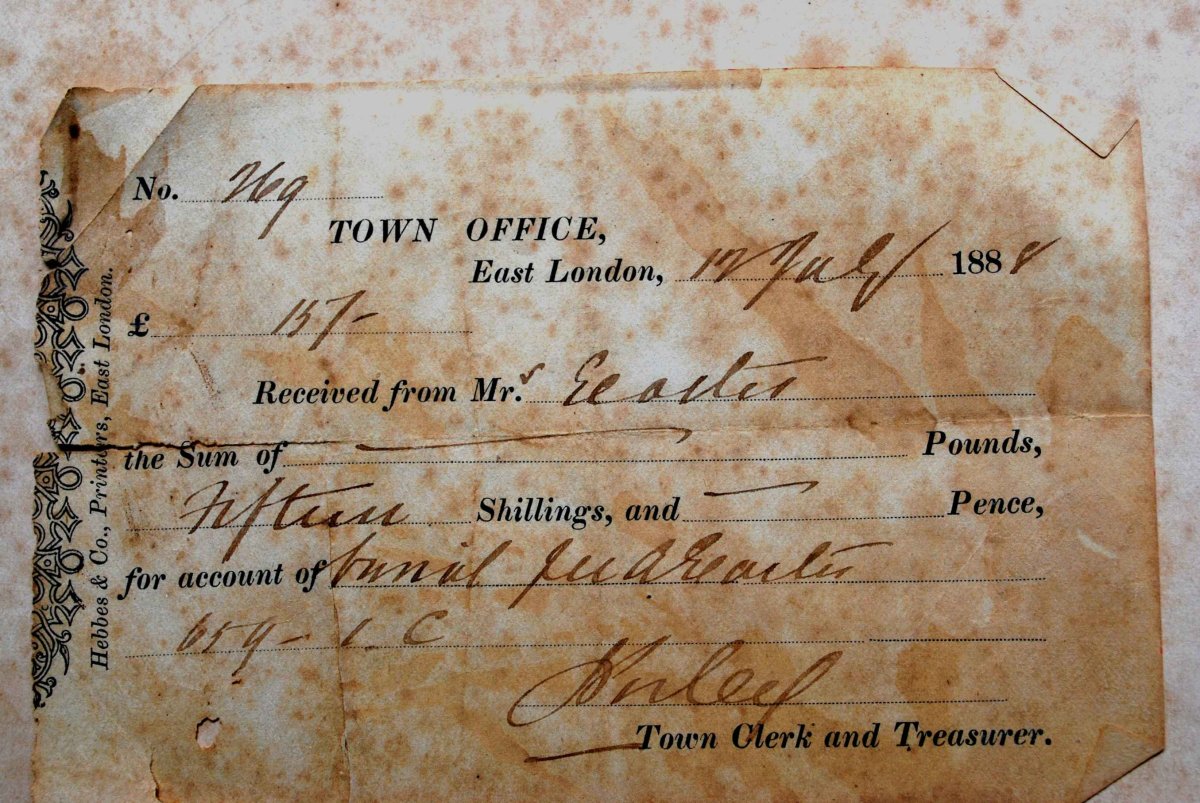 No. 269
TOWN OFFICE,
East London, 12 July 1888
£ 15/-
Received from Mrs.
the Sum of — Pounds,
Fifteen Shillings, and — Pence,
for account of burial fee A
659 - 1. C
Town Clerk and Treasurer.
Hebbes & Co., Printers, East London.